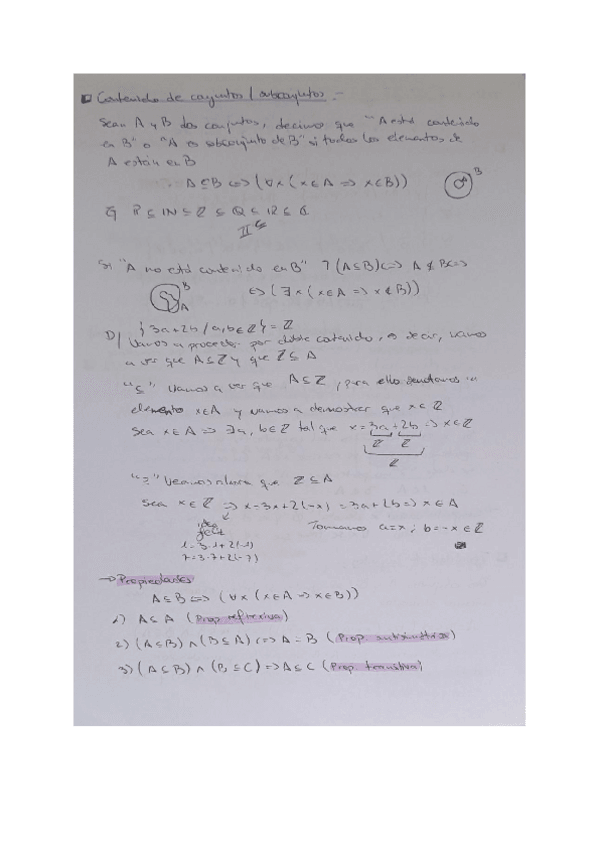 Contenido de conjuntos / subconjuntos :-
Sean A y B dos conjuntos, decimos que "A está contenido
en B" o "A es subconjunto de B" si todos los elementos de
A están en B
A ⊆ B <=> (∀x (x ∈ A => x ∈ B))
B
A
Ej P ⊆ IN ⊆ Z ⊆ Q ⊆ IR ⊆ C
II ⊆
Si "A no está contenido en B" ¬(A ⊆ B) <=> A ⊈ B <=>
B
A
<=> (∃x (x ∈ A => x ∉ B))
{3a+2b / a,b ∈ Z} = Z
D/ Vamos a proceder por doble contenido, es decir, vamos
a ver que A ⊆ Z y que Z ⊆ A
"⊆" Vamos a ver que A ⊆ Z, para ello tomamos un
elemento x ∈ A y vamos a demostrar que x ∈ Z
Sea x ∈ A => ∃ a, b ∈ Z tal que x = 3a + 2b => x ∈ Z
Z Z
Z
"⊇" Veamos ahora que Z ⊆ A
Sea x ∈ Z => x = 3x + 2(-x) = 3a + 2b => x ∈ A
Idea
Tomamos a = x ; b = -x ∈ Z
1 = 3·1 + 2(-1)
7 = 3·7 + 2(-7)
→ Propiedades
A ⊆ B <=> (∀x (x ∈ A => x ∈ B))
1) A ⊆ A (Prop reflexiva)
2) (A ⊆ B) ∧ (B ⊆ A) <=> A = B (Prop antisimétrica)
3) (A ⊆ B) ∧ (B ⊆ C) => A ⊆ C (Prop transitiva)